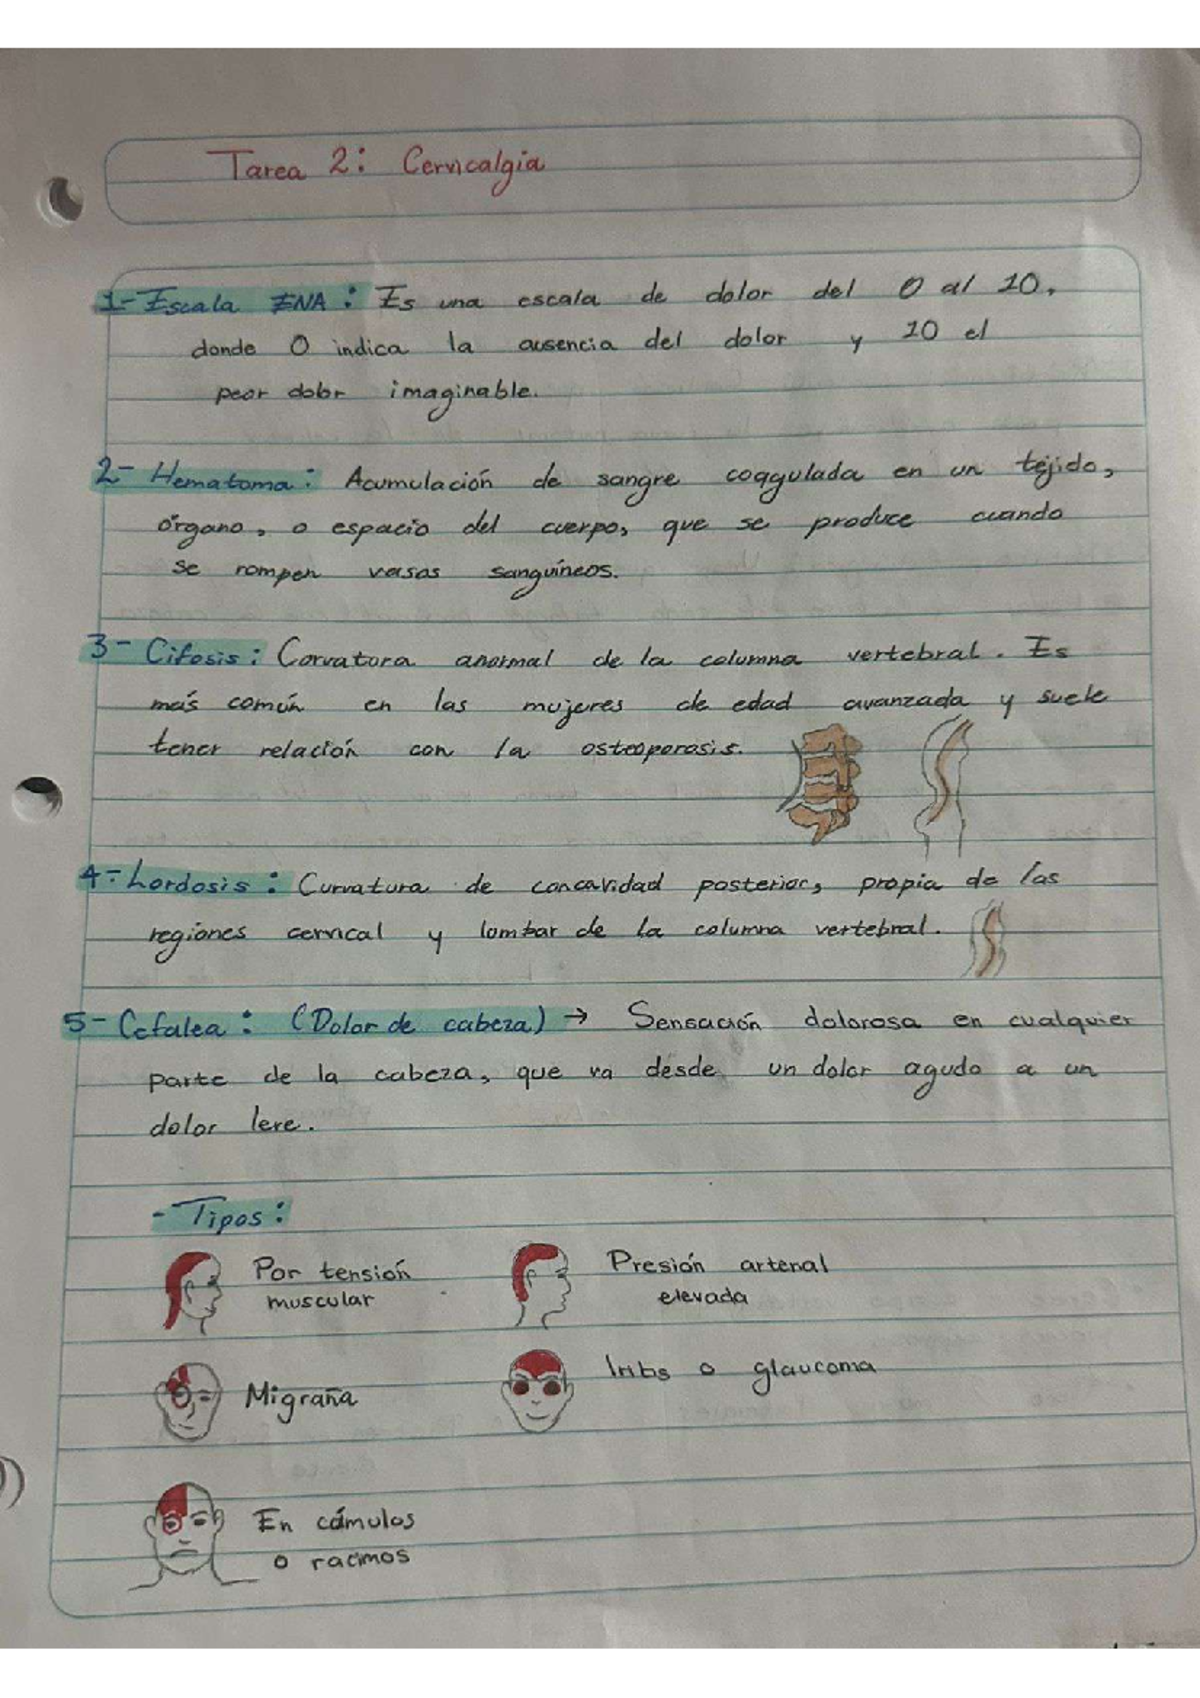 Tarea 2: Cervicalgia
1- Escala ENA: Es una escala de dolor del 0 al 10,
donde 0 indica la ausencia del dolor y 10 el
peor dolor imaginable.
2- Hematoma: Acumulación de sangre coagulada en un tejido,
órgano, o espacio del cuerpo, que se produce cuando
se rompen vasos sanguíneos.
3- Cifosis: Corvatura anormal de la columna vertebral. Es
más común en las mujeres de edad avanzada y suele
tener relación con la osteoporosis.
4- Lordosis: Curvatura de concavidad posterior, propia de las
regiones cervical y lombar de la columna vertebral.
5- Cefalea: (Dolor de cabeza) → Sensación dolorosa en cualquier
parte de la cabeza, que va desde un dolor agudo a un
dolor leve.
- Tipos:
Por tensión
muscular
Presión arterial
elevada
Migraña
Iritis o glaucoma
En cúmulos
o racimos